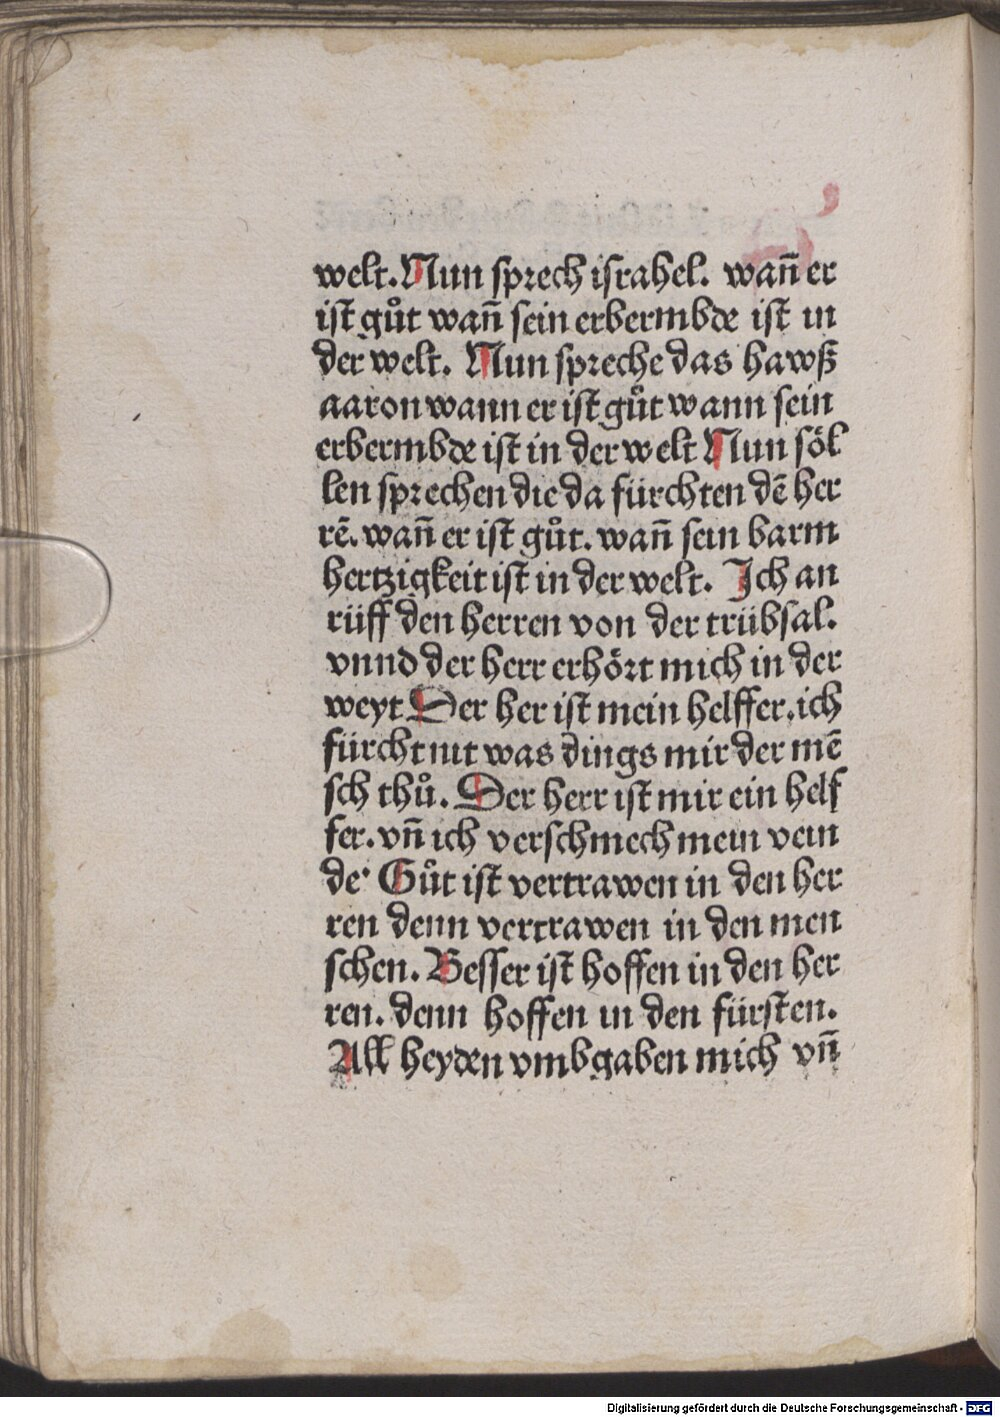 welt. Nun sprech israhel. wañ er
ist gůt wañ sein erbermbde ist in
der welt. Nun spreche das hawß
aaron wann er ist gůt wann sein
erbermbde ist in der welt Nun söl
len sprechen die da fürchten dē her
rē. wañ er ist gůt. wañ sein barm
hertzigkeit ist in der welt. Ich an
rüff den herren von der trübsal.
vnnd der herr erhört mich in der
weyt Der her ist mein helffer. ich
fürcht nit was dings mir der mē
sch thů. Der herr ist mir ein helf
fer. vñ ich verschmech mein vein
de. Gůt ist vertrawen in den her
ren denn vertrawen in den men
schen. Besser ist hoffen in den her
ren. denn hoffen in den fürsten.
All heyden vmbgaben mich vñ
Digitalisierung gefördert durch die Deutsche Forschungsgemeinschaft - DFG